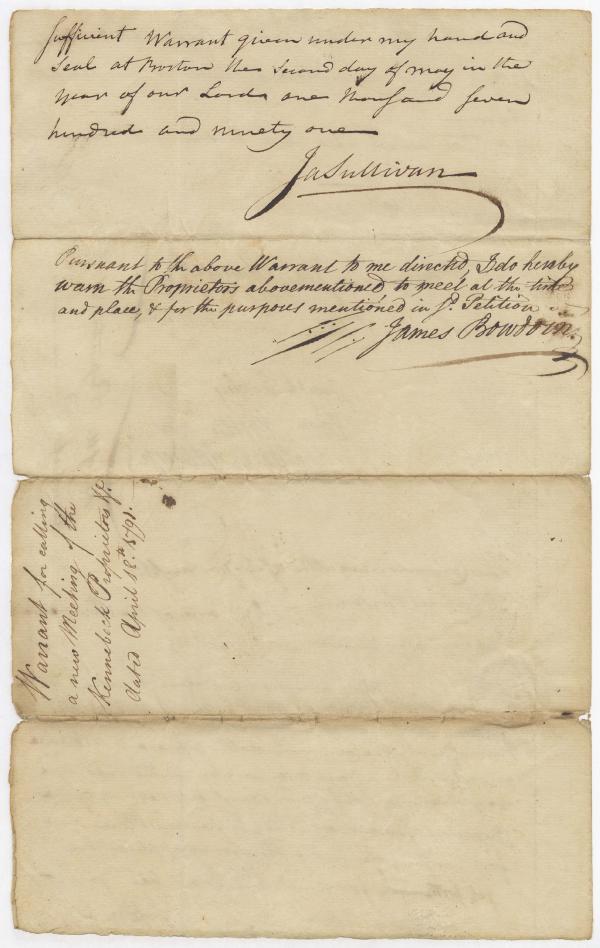 sufficient Warrant given under my hand and
Seal at Boston the Second day of may in the
year of our Lord one thousand seven
hundred and ninety one
Ja Sullivan
Pursuant to th above Warrant to me directd, I do hereby
warn th Proprietors abovementioned to meet at the time
and place, & for the purposes mentioned in sd. Petition
James Bowdoin.
Warrant for calling
a new Meeting of the
Kennebeck Proprietors &c.
datd April 18th. 1791.